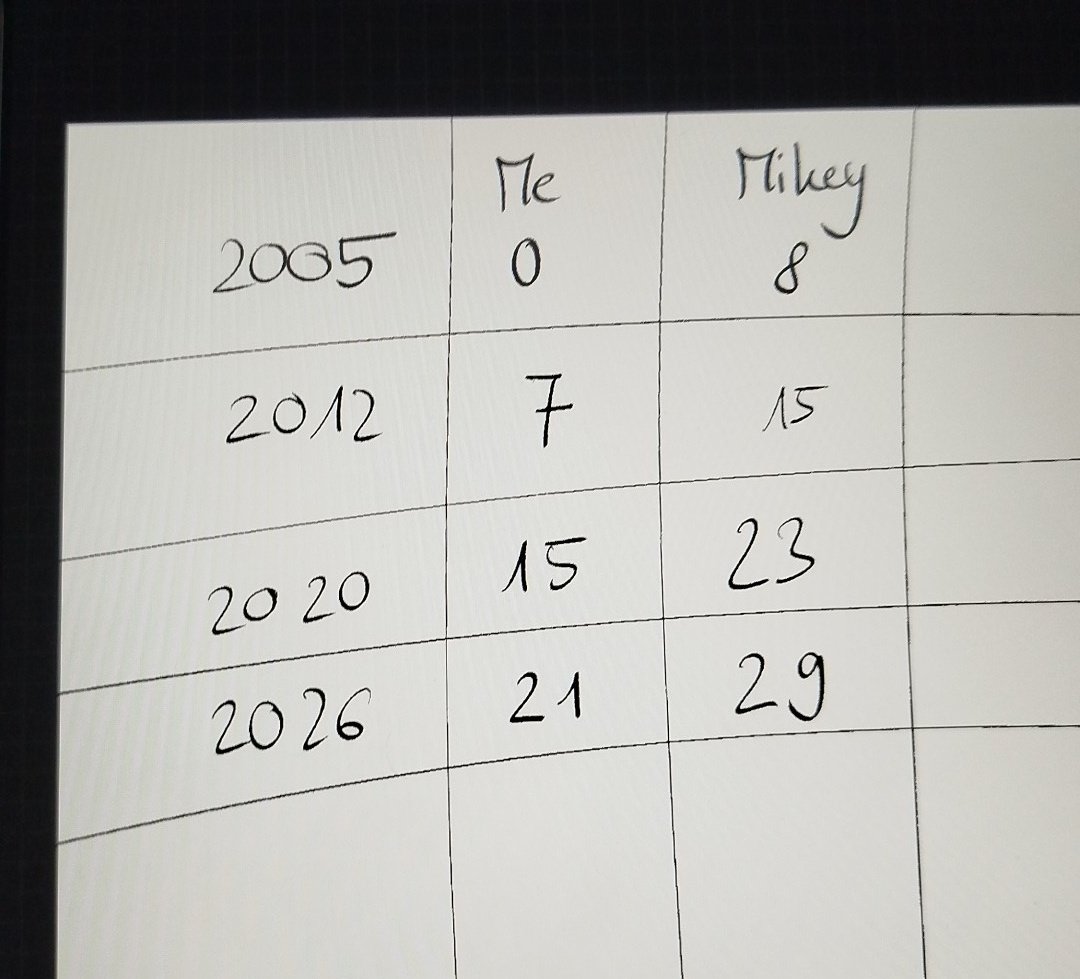 Me Mikey
2005 0 8
2012 7 15
2020 15 23
2026 21 29